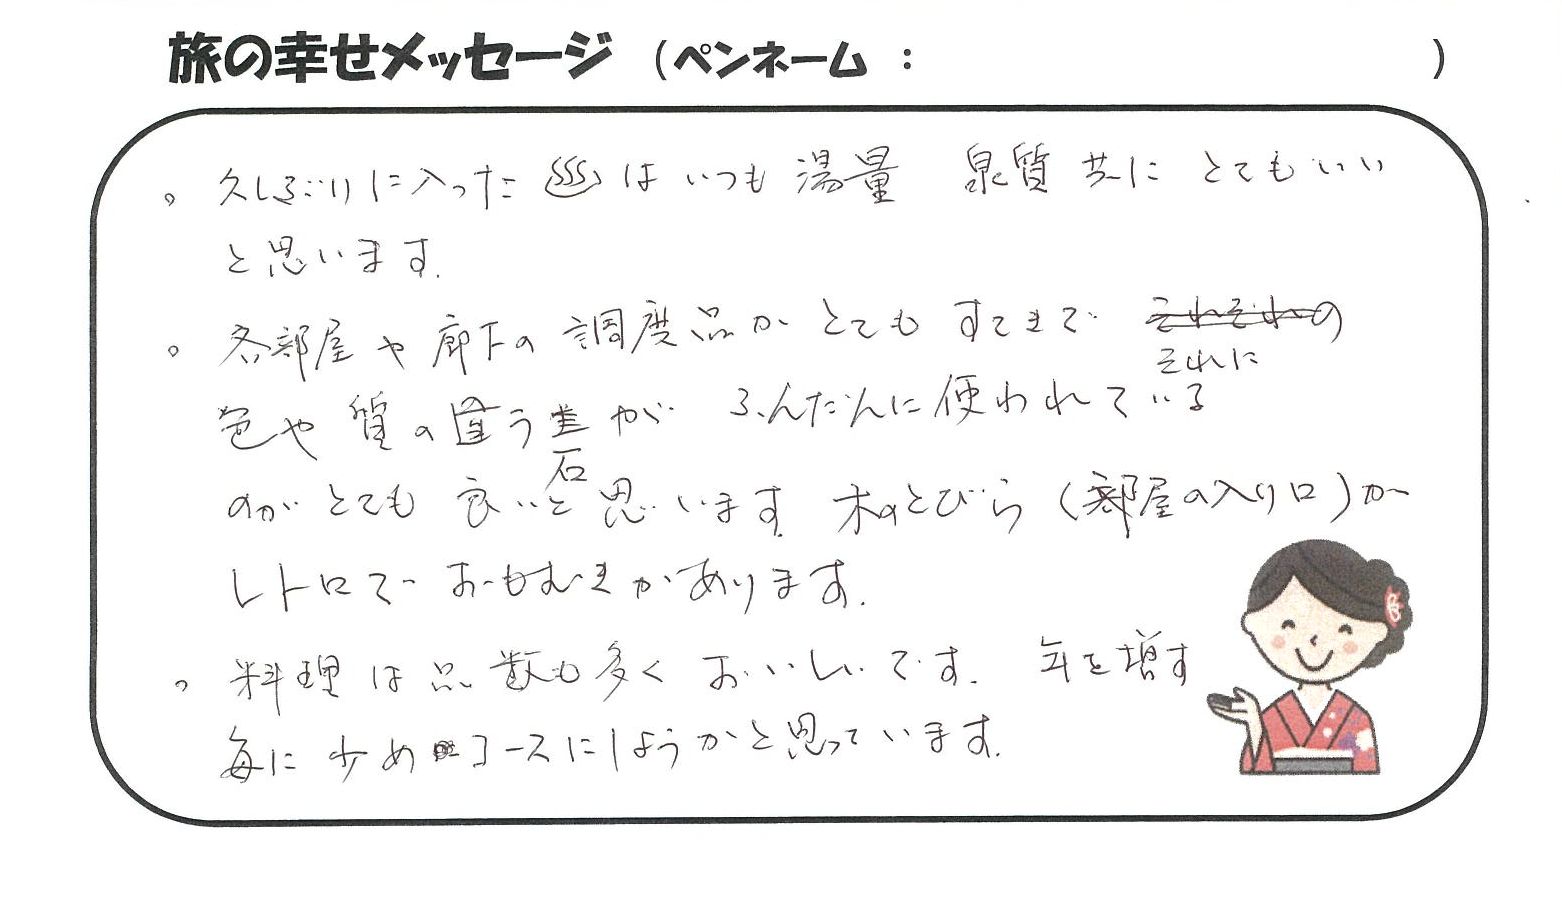 旅の幸せメッセージ （ペンネーム ： ）
。久しぶりに入った♨はいつも湯量 泉質共にとてもいい
と思います。
。各部屋や廊下の調度品がとてもすてきで それぞれの
それに
色や質の違う畳が ふんだんに使われている
石
のがとても良いと思います 木のとびら（部屋の入り口）が
レトロで おもむきがあります。
。料理は品数も多く おいしいです。 年を増す
毎に少めコースにしようかと思っています。